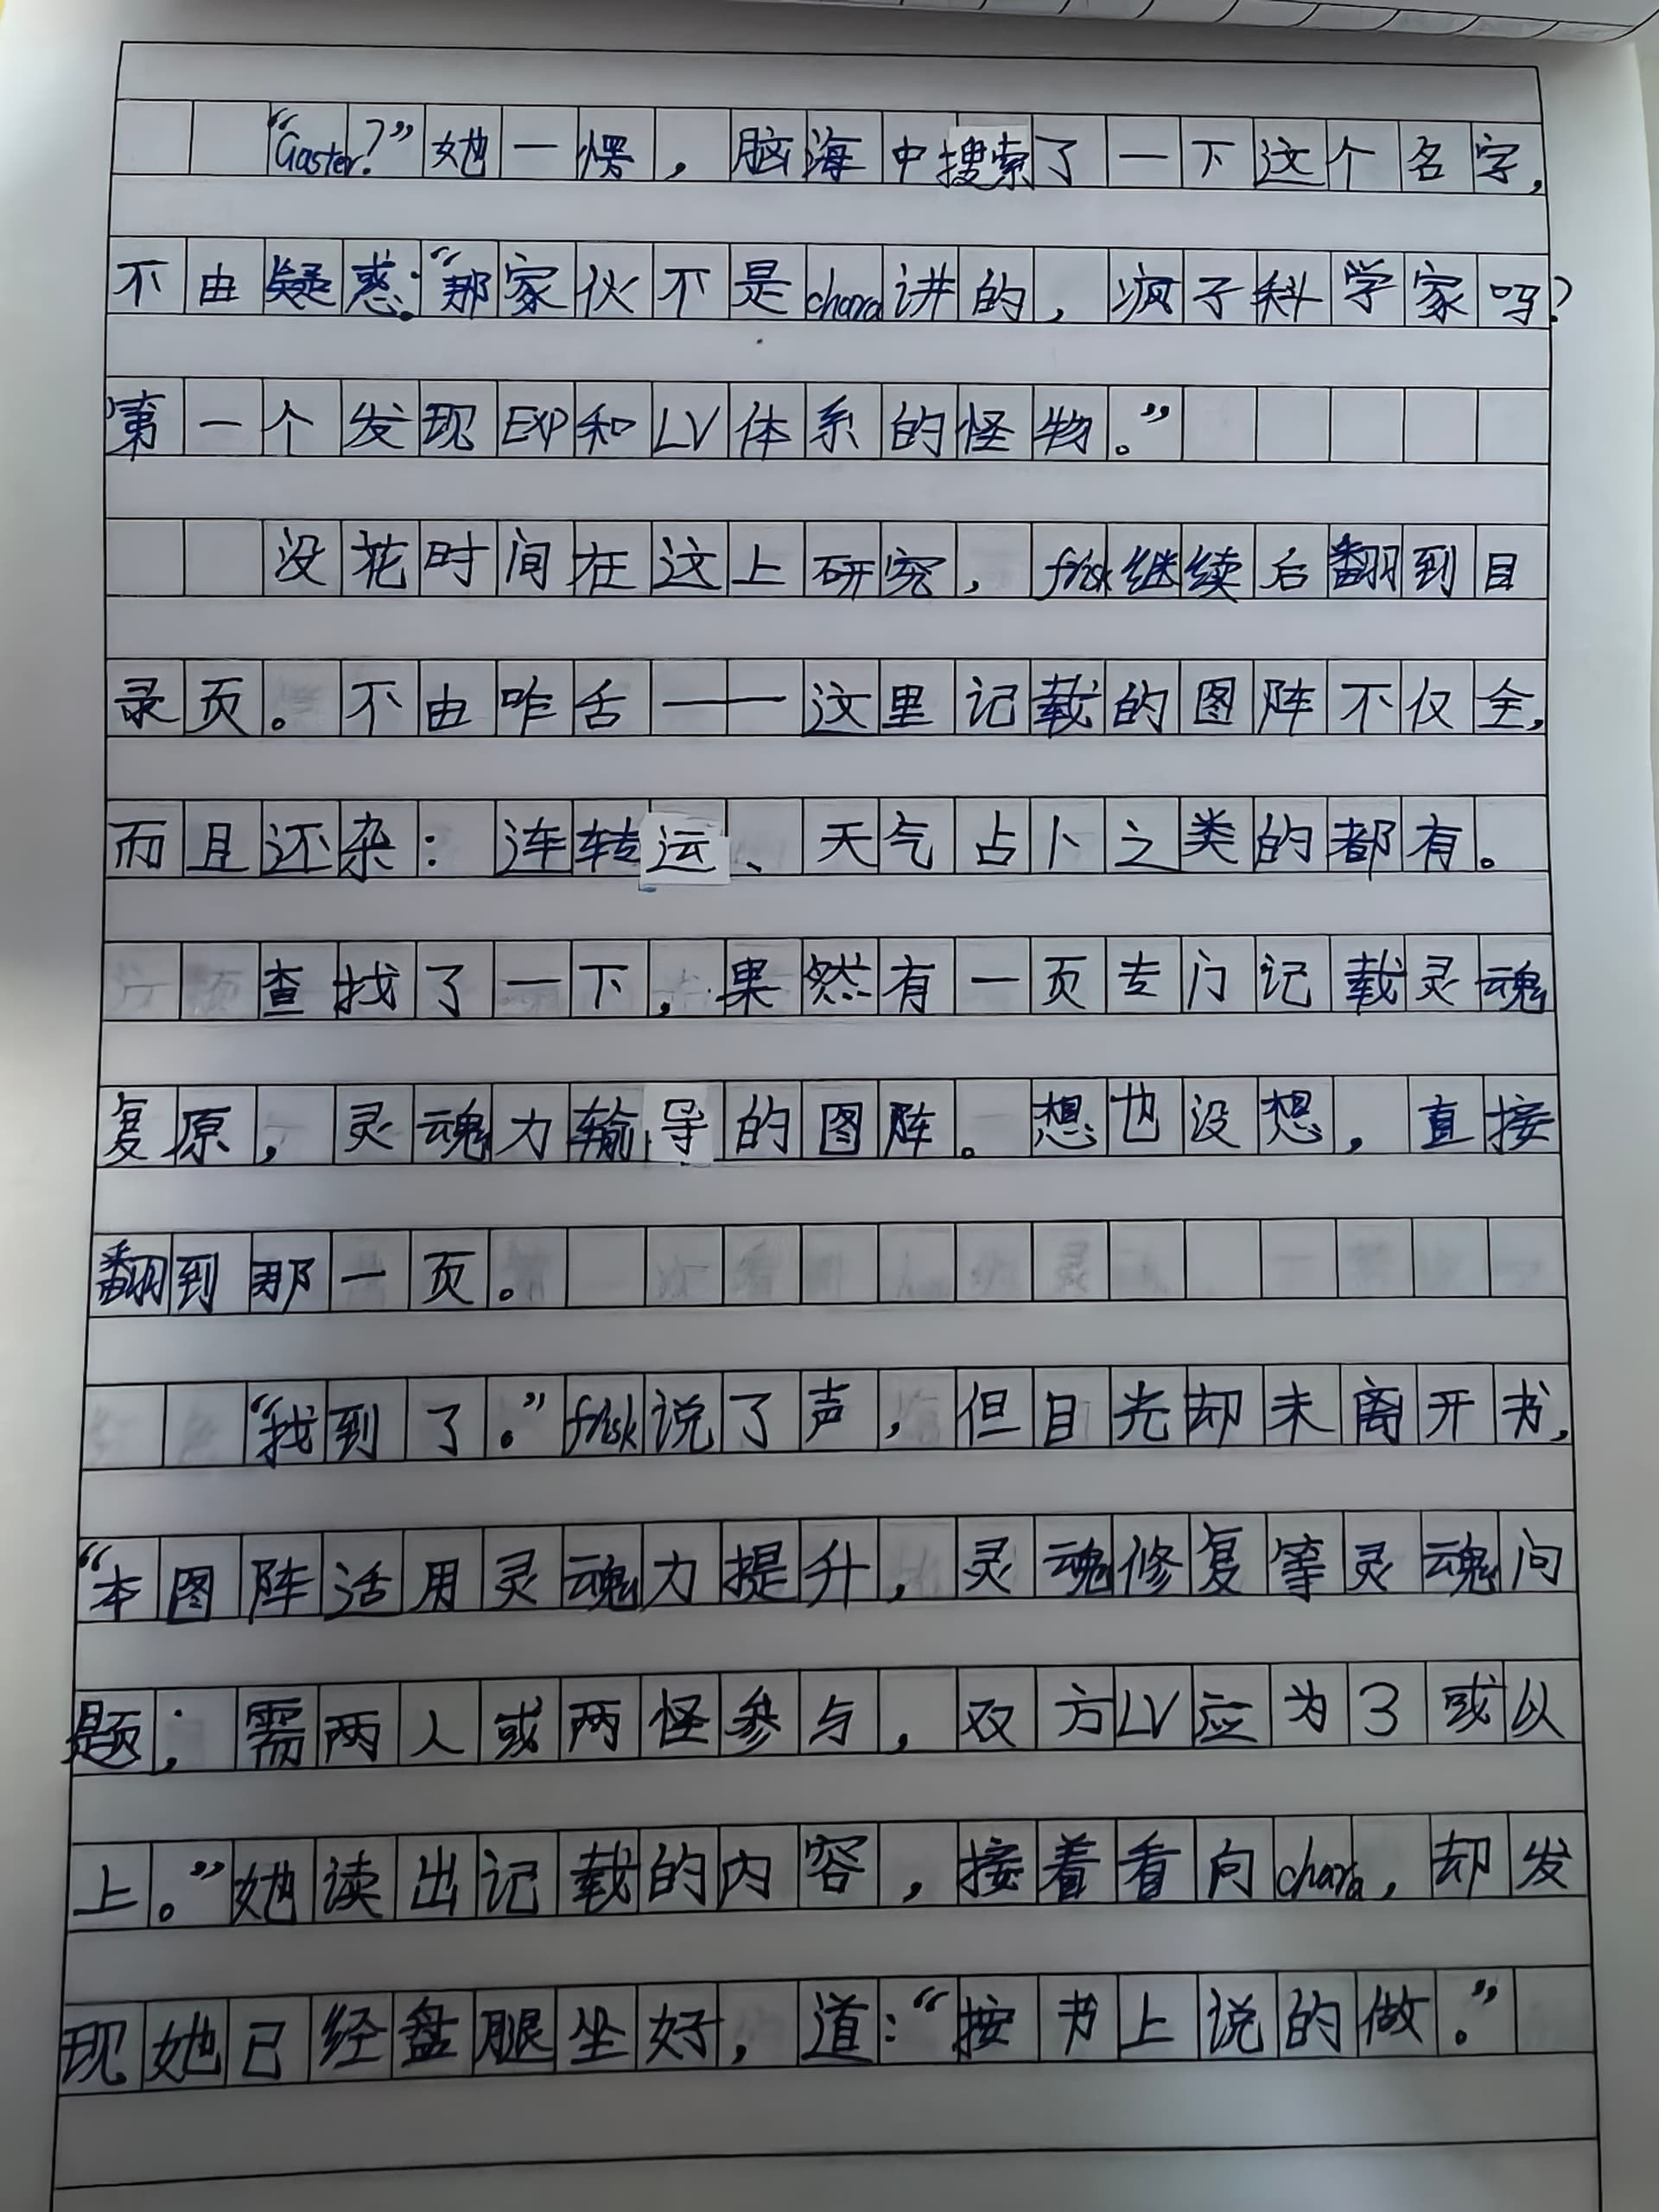 “Gaster?”她一愣，脑海中搜索了一下这个名字，
不由疑惑：“那家伙不是chara讲的，疯子科学家吗？
第一个发现EXP和LV体系的怪物。”
没花时间在这上研究，frisk继续后翻到目
录页。不由咋舌——这里记载的图阵不仅全，
而且还杂：连转运、天气占卜之类的都有。
查找了一下，果然有一页专门记载灵魂
复原，灵魂力输导的图阵。想也没想，直接
翻到那一页。
“找到了。”frisk说了声，但目光却未离开书，
“本图阵适用灵魂力提升，灵魂修复等灵魂问
题；需两人或两怪参与，双方LV应为3或以
上。”她读出记载的内容，接着看向chara，却发
现她已经盘腿坐好，道：“按书上说的做。”